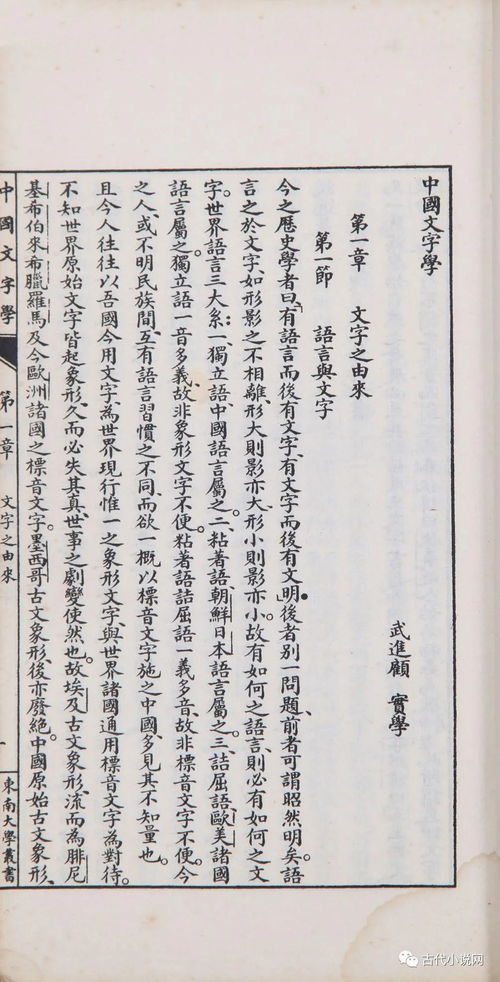 中國文字學
武進顧　實學
第一章　文字之由來
第一節　語言與文字
今之歷史學者曰「有語言而後有文字、有文字而後有文明」後者別一問題、前者可謂昭然明矣。語
言之於文字、如形影之不相離、形大則影亦大、形小則影亦小。故有如何之語言、則必有如何之文
字。世界語言三大系：一、獨立語、中國語言屬之。二、粘著語、朝鮮日本語言屬之。三、詰屈語、歐美諸國
語言屬之。獨立語一音多義、故非象形文字不便。粘著語詰屈語一義多音、故非標音文字不便。今
之人、或不明民族間、互有語言習慣之不同、而欲一概以標音文字施之中國、多見其不知量也。
且今人往往以吾國今用文字、為世界現行惟一之象形文字、與世界諸國通用標音文字為對待。
不知世界原始文字皆起象形、久而必失其真、世事之劇變使然也。故埃及古文象形、流而為腓尼
基希伯來希臘羅馬及今歐洲諸國之標音文字。墨西哥古文象形、後亦廢絕。中國原始古文象形、
中國文字學　第一章　文字之由來　一　東南大學叢書
古代小说网